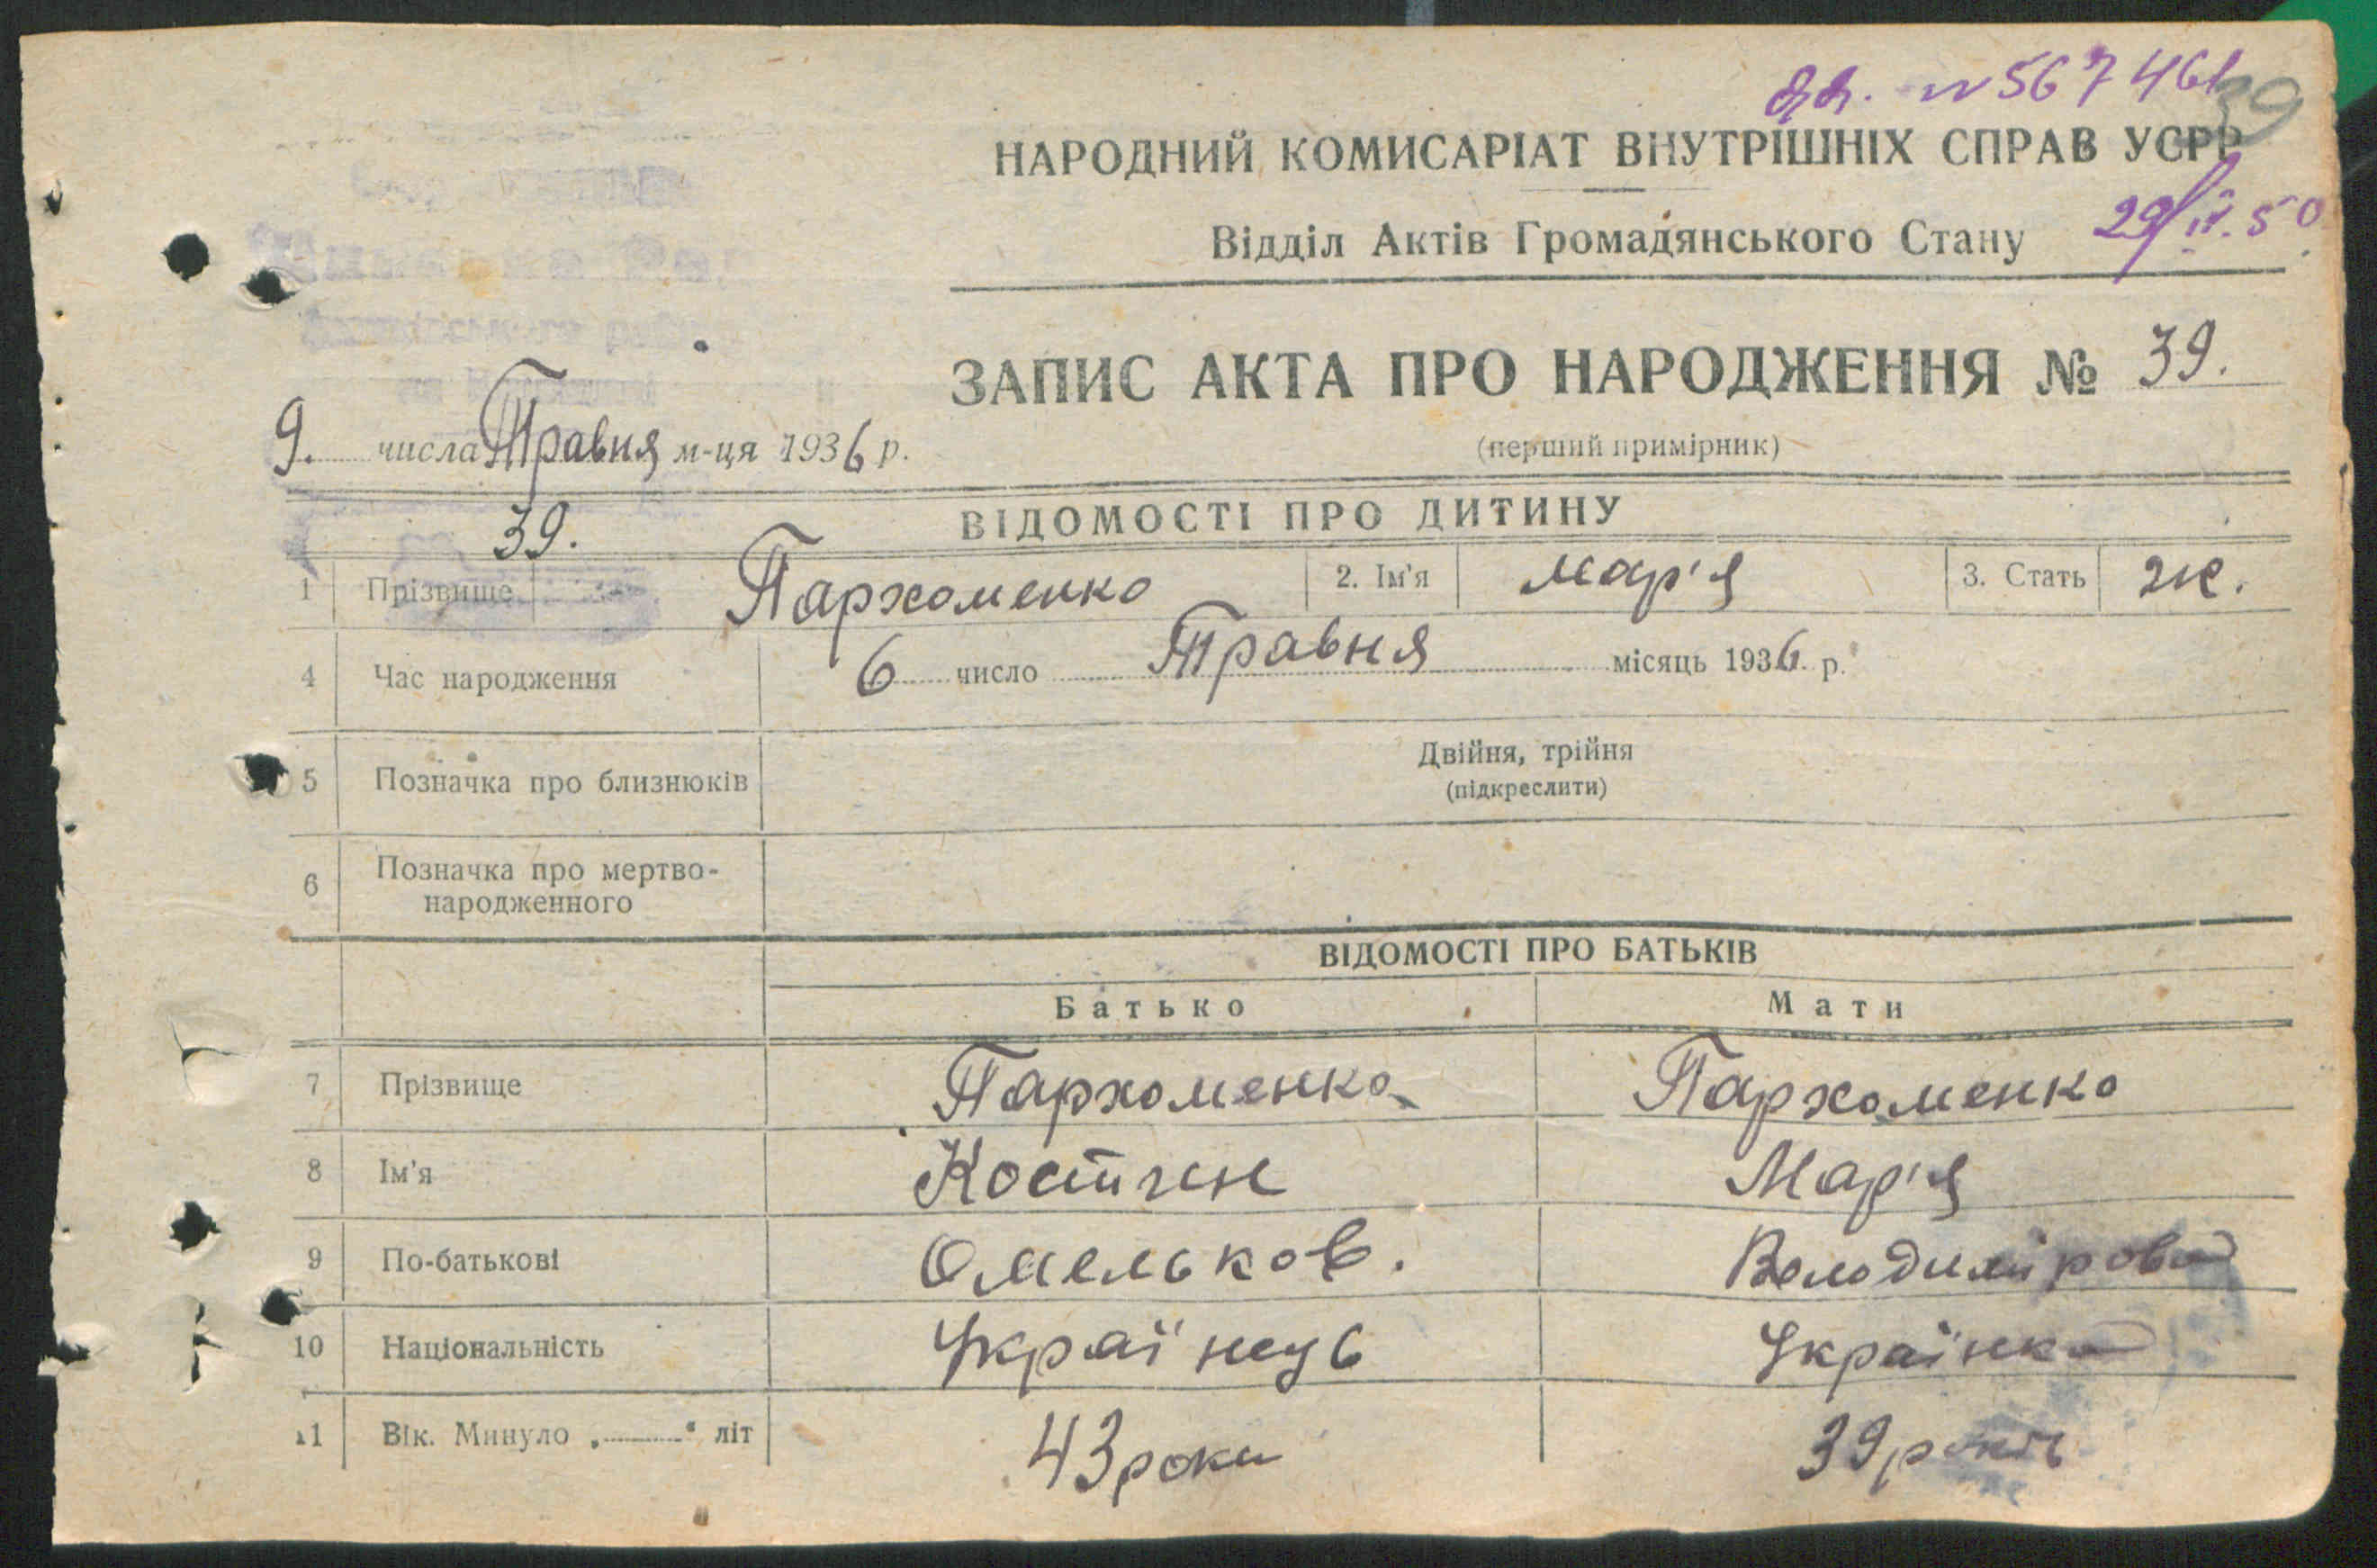 № 567461
39
НАРОДНИЙ КОМИСАРІАТ ВНУТРІШНІХ СПРАВ УСРР
Відділ Актів Громадянського Стану 29/IV.50
ЗАПИС АКТА ПРО НАРОДЖЕННЯ № 39.
9. числа Травня м-ця 1936 р.
(перший примірник)
ВІДОМОСТІ ПРО ДИТИНУ
39.
1 Прізвище Пархоменко 2. Ім'я Мар'я 3. Стать ж.
4 Час народження 6 число Травня місяць 1936 р.
5 Позначка про близнюків Двійня, трійня
(підкреслити)
6 Позначка про мертво-
народженного
ВІДОМОСТІ ПРО БАТЬКІВ
Батько Мати
7 Прізвище Пархоменко Пархоменко
8 Ім'я Костин Мар'я
9 По-батькові Омельков. Володимірова
10 Національність Українець Українка
11 Вік. Минуло „ “ літ 43 роки 39 років